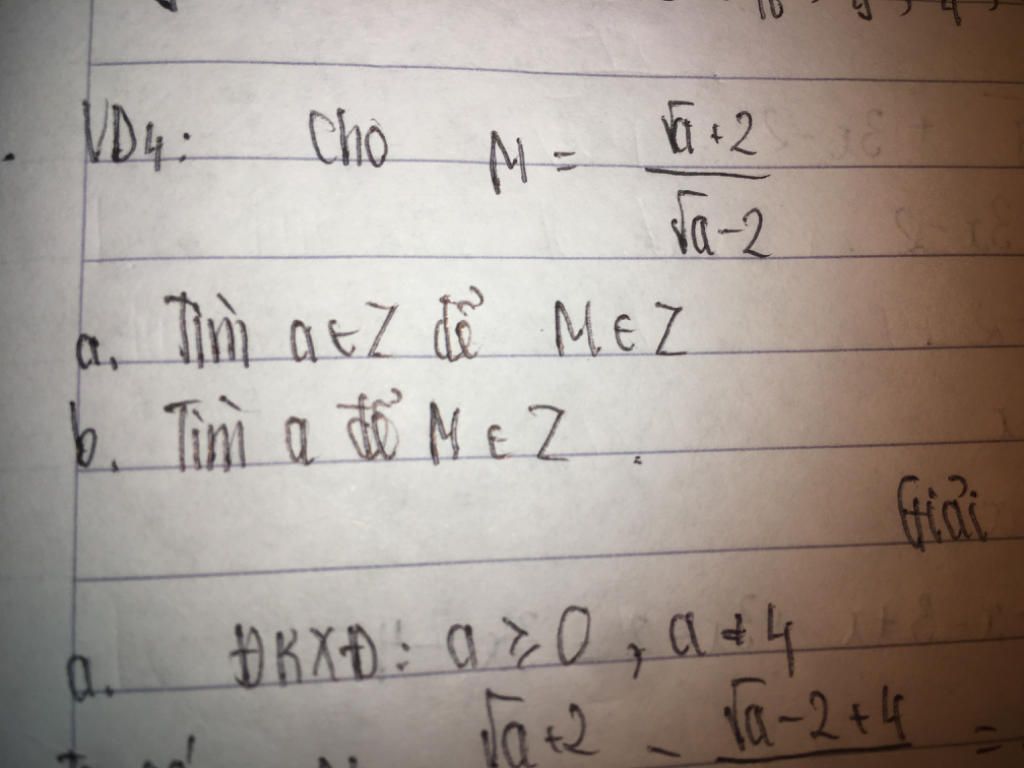 VD4: Cho M = \frac{\sqrt{a}+2}{\sqrt{a}-2}
a. Tìm a ∈ Z để M ∈ Z
b. Tìm a để M ∈ Z.
Giải
a. ĐKXĐ: a ≥ 0, a ≠ 4
√a+2 √a-2+4 =